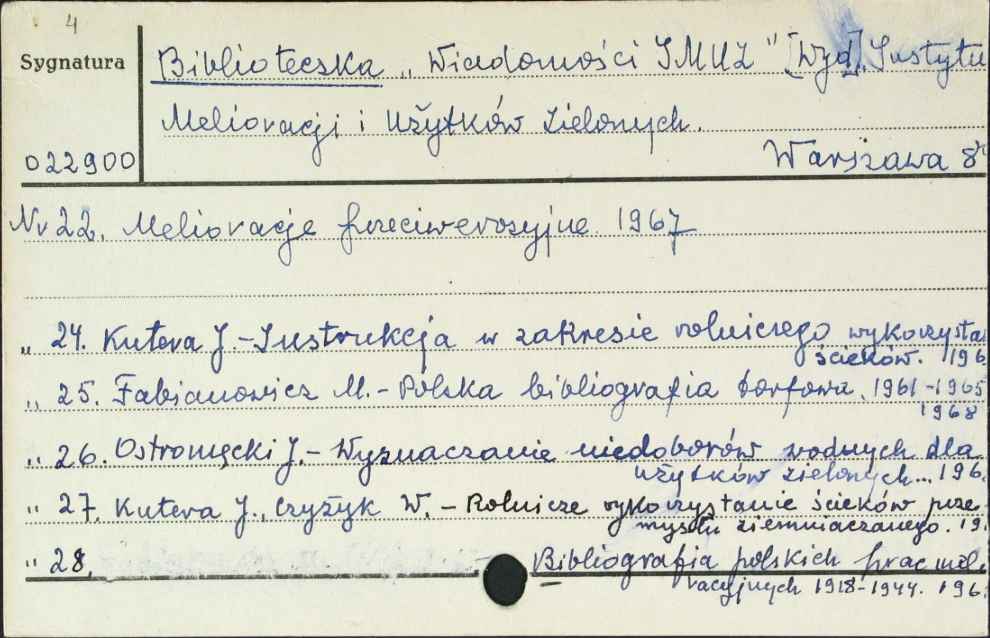 4
Sygnatura
Biblioteczka „Wiadomości IMUZ" [Wyd]. Instytu
Melioracji i Użytków Zielonych.
022900
Warszawa 8°
Nr 22. Melioracje przeciwerozyjne. 1967
„ 24. Kutera J.-Instrukcja w zakresie rolniczego wykorzysta
ścieków. 196
„ 25. Fabianowicz M.-Polska bibliografia torfowa. 1961-1965
1968
„ 26. Ostromęcki J.- Wyznaczanie niedoborów wodnych dla
użytków zielonych... 196.
„ 27. Kutera J., Czyżyk W. - Rolnicze wykorzystanie ścieków prze-
mysłu ziemniaczanego. 19.
„ 28. Bibliografia polskich prac melio
racyjnych 1918-1944. 196.